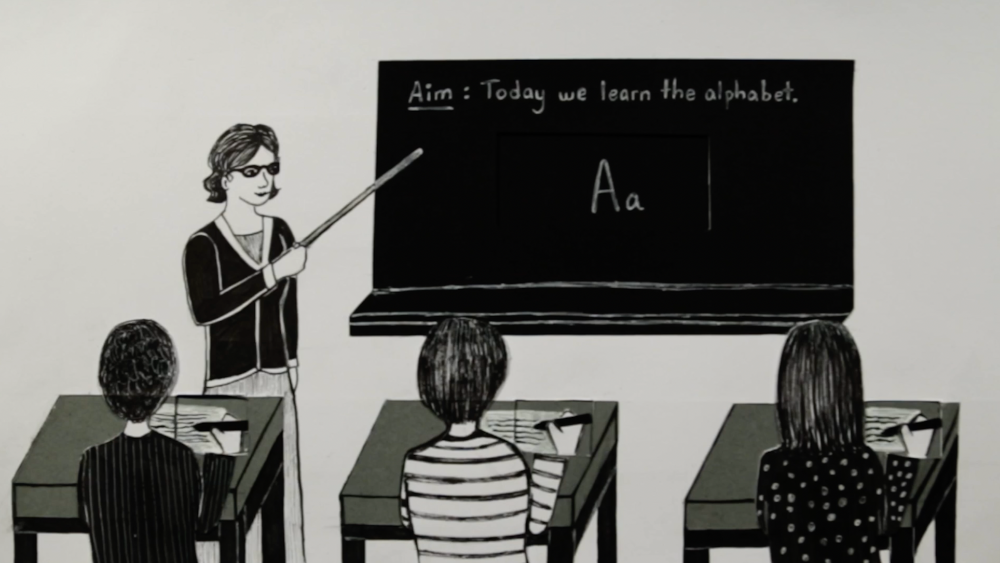 Aim : Today we learn the alphabet.
Aa